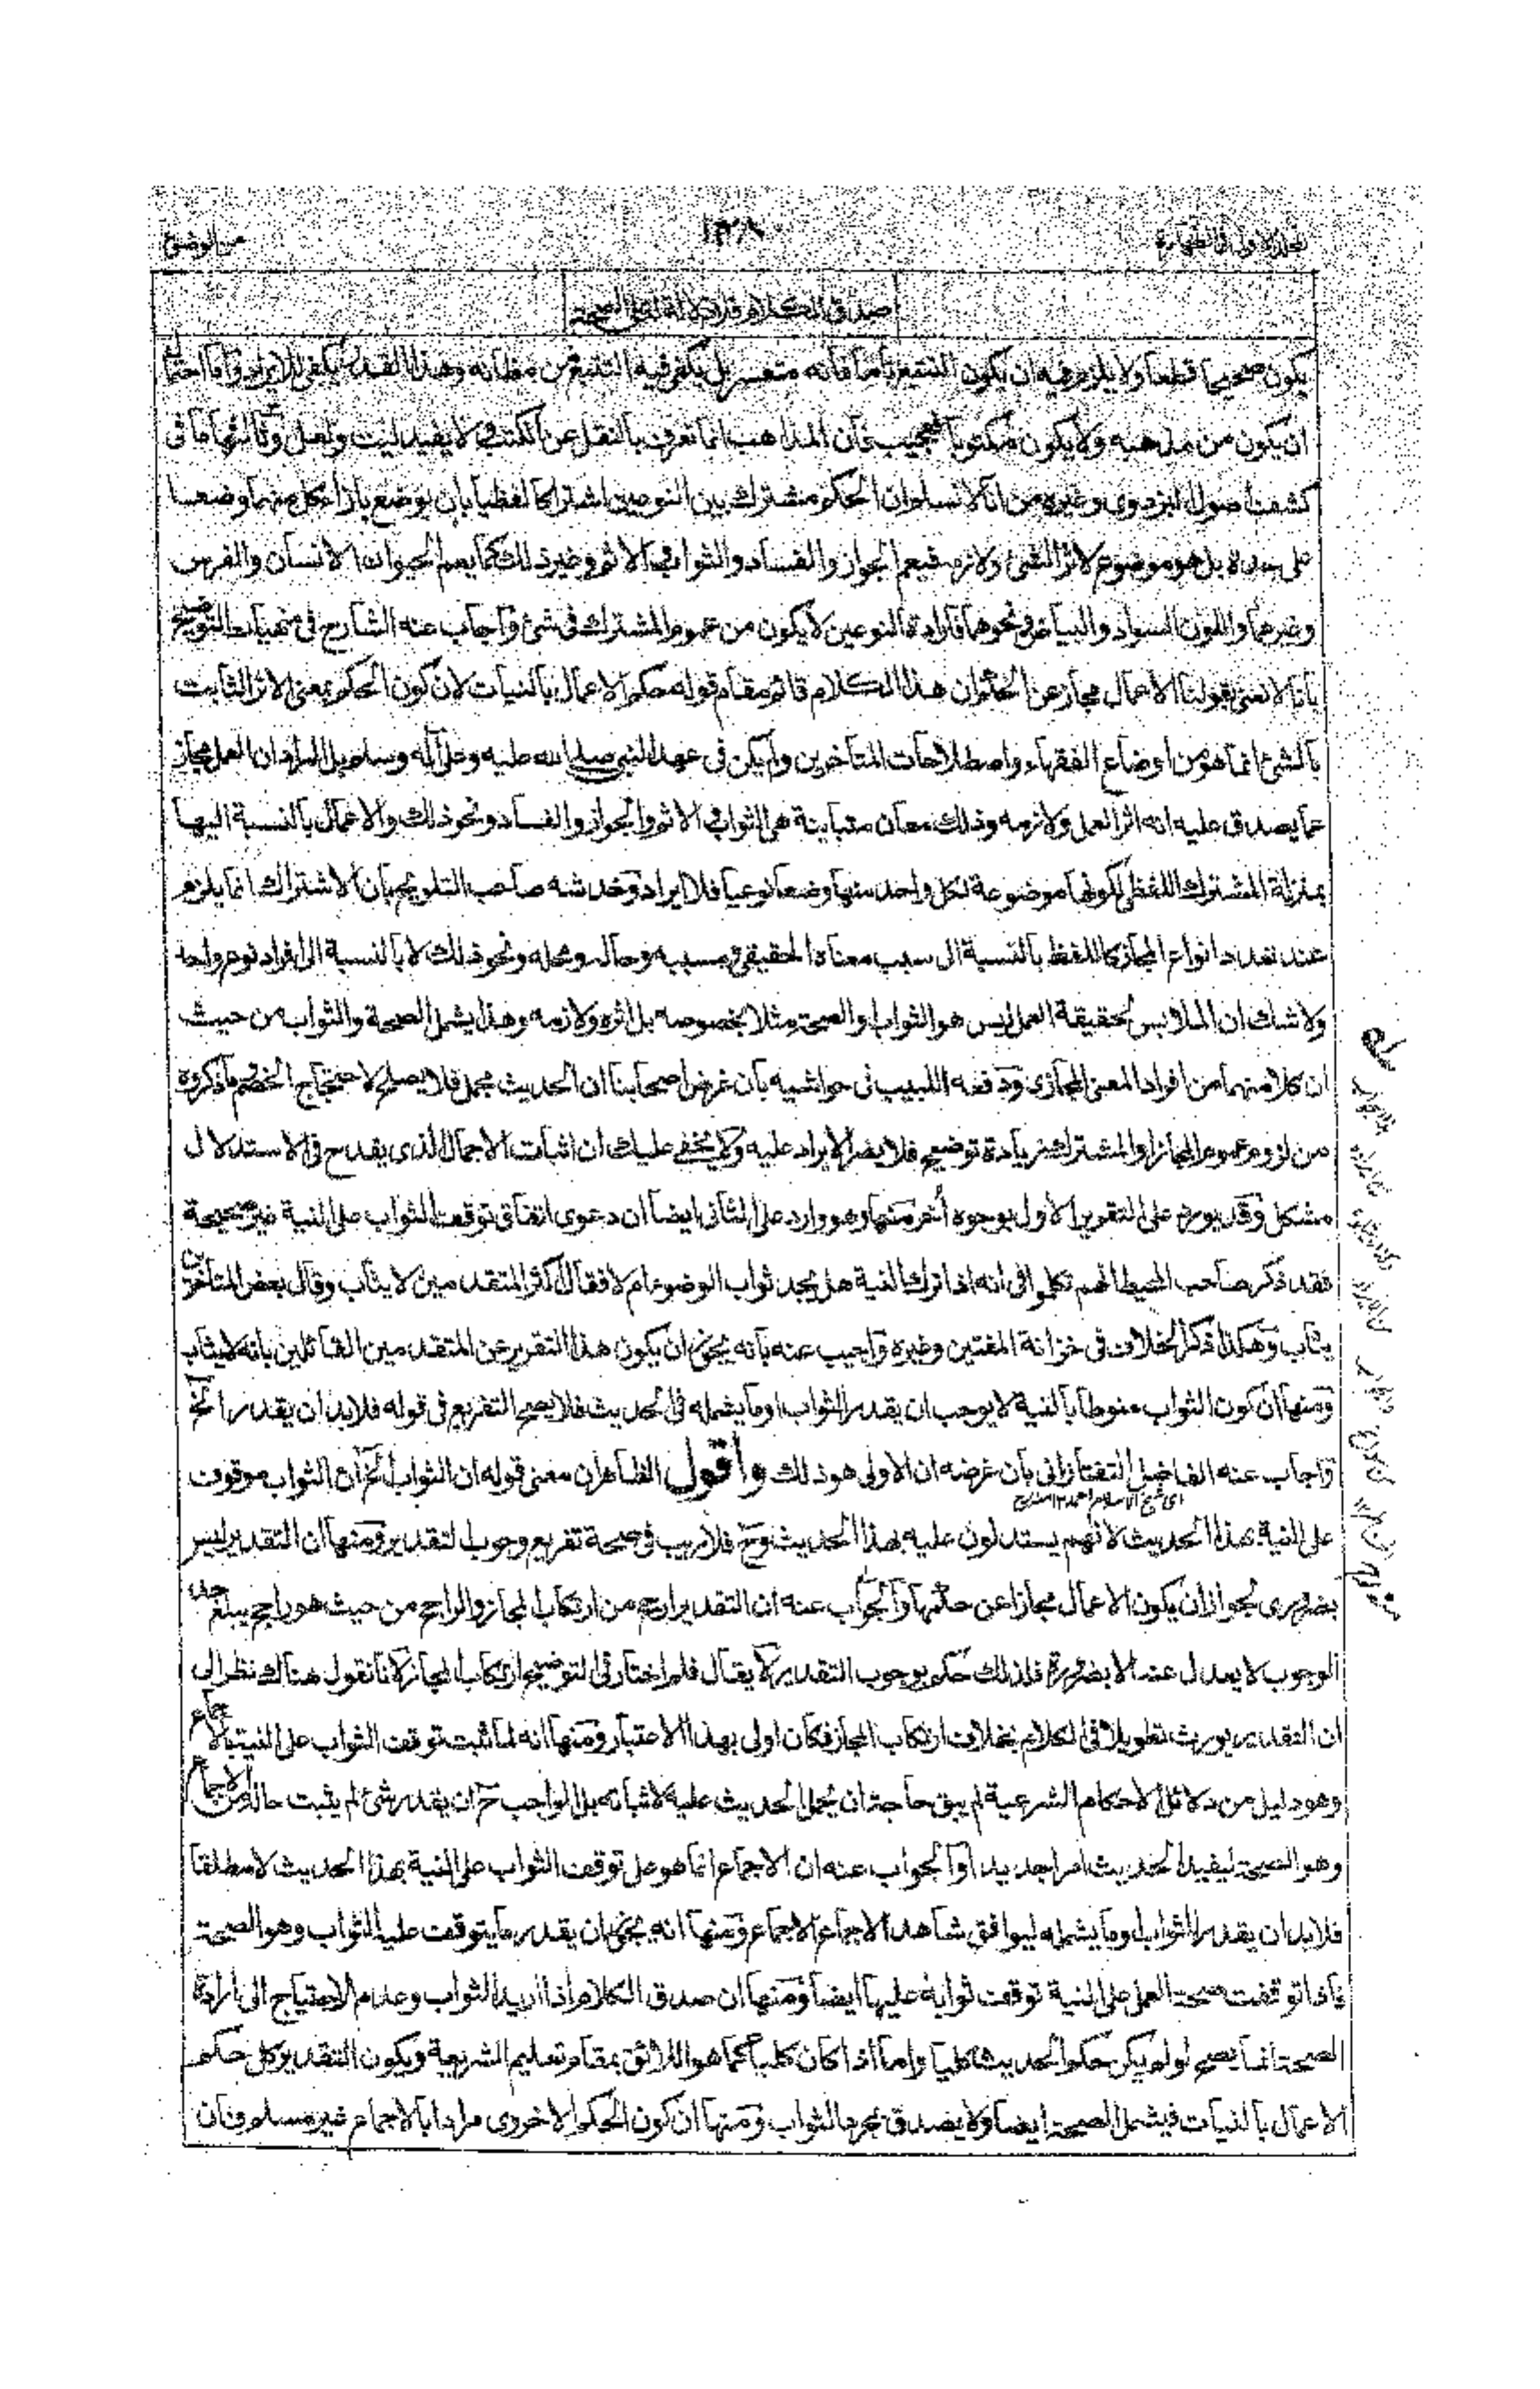 المجلد الاول فى الطهارة
١٣٨
من الوضوء
صدق الكلام فلا دلالة له على الصحة
يكون صحيحا قطعا ولا يلزم فيه ان يكون التتبع تاما فانه متعسر بل يكفى فيه التتبع من مظانه وهذا القدر يكفى للايراد واما احتمال
ان يكون من مذهبه ولا يكون مكتوبا فعجيب فان المذاهب انما تعرف بالنقل عن الكتب فلا يفيد ليت ولعل وثالثها ما فى
كشف اصول البزدوى وغيره من انا لا نسلم ان الحكم مشترك بين النوعين اشتراكا لفظيا بان يوضع بازاء كل منهما وضعا
على حدة بل هو موضوع لاثر الشئ ولازمه فيعم الجواز والفساد والثواب والاثم وغير ذلك كما يعم الحيوان الانسان والفرس
وغيرهما واللون السواد والبياض ونحوهما فارادة النوعين لا يكون من عموم المشترك فى شئ واجاب عنه الشارح فى منهيات التوضيح
بانا لا نعنى بقولنا الاعمال مجاز عن الحكم ان هذا الكلام قائم مقام قوله حكم الاعمال بالنيات لان كون الحكم بمعنى الاثر الثابت
بالشئ انما هو من اوضاع الفقهاء واصطلاحات المتأخرين ولم يكن فى عهد النبى صلى الله عليه وعلى آله وسلم بل المراد ان العمل مجاز
عما يصدق عليه انه اثر العمل ولازمه وذلك معان متباينة هى الثواب والاثم والجواز والفساد ونحو ذلك والاعمال بالنسبة اليها
بمنزلة المشترك اللفظى لكونها موضوعة لكل واحد منها وضعا نوعيا فلا ايراد وخدشه صاحب التلويح بان الاشتراك انما يلزم
عند تعدد انواع المجاز كاللفظ بالنسبة الى سبب معناه الحقيقى ومسببه وحاله ومحله ونحو ذلك لا بالنسبة الى افراد نوع واحد
ولا شك ان الملابس لحقيقة العمل ليس هو الثواب او الصحة مثلا بخصوصه بل اثره ولازمه وهذا يشمل الصحة والثواب من حيث
ان كلا منهما من افراد المعنى المجازى ودفعه اللبيب فى حواشيه بان غرض اصحابنا ان الحديث مجمل فلا يصلح لاحتجاج الخصم وما ذكروه
من لزوم عموم المجاز او المشترك زيادة توضيح فلا يضر الايراد عليه ولا يخفى عليك ان اثبات الاجمال الذى يقدح فى الاستدلال
مشكل وقد يورد على التقرير الاول بوجوه أخر منها وهو وارد على الثانى ايضا ان دعوى اتفاق توقف الثواب على النية غير صحيحة
فقد ذكر صاحب المحيط انهم تكلموا فى انه اذا ترك النية هل يجد ثواب الوضوء ام لا فقال اكثر المتقدمين لا يثاب وقال بعض المتأخرين
يثاب وهكذا ذكر الخلاف فى خزانة المفتين وغيره واجيب عنه بانه يجوز ان يكون هذا التقرير عن المتقدمين القائلين بانه لا يثاب
ومنها ان كون الثواب منوطا بالنية لا يوجب ان يقدر الثواب او ما يشمله فى الحديث فلا يصح التفريع فى قوله فلا بد ان يقدر الخ
واجاب عنه الفاضل التفتازانى بان غرضه ان الاولى هو ذلك واقول الظاهر ان معنى قوله ان الثواب الخ ان الثواب موقوف
اى شيخ الاسلام احمد ١٢ منه
على النية بهذا الحديث لانهم يستدلون عليه بهذا الحديث وح فلا ريب فى صحة تفريع وجوب التقدير ومنها ان التقدير ليس
بضرورى لجواز ان يكون الاعمال مجازا عن حكمها والجواب عنه ان التقدير ارجح من ارتكاب المجاز والراجح من حيث هو راجح يبلغ حد
الوجوب لا يعدل عنه الا بضرورة فلذلك حكم بوجوب التقدير لا يقال فلم اختار فى التوضيح ارتكاب المجاز لانا نقول هناك نظر الى
ان التقدير يورث تطويلا فى الكلام بخلاف ارتكاب المجاز فكان اولى بهذا الاعتبار ومنها انه لما ثبت توقف الثواب على النية بالاجماع
وهو دليل من دلائل الاحكام الشرعية لم يبق حاجة ان يحمل الحديث عليه لاثباته بل الواجب ح ان يقدر شئ لم يثبت حاله من الاجماع
وهو الصحة ليفيد الحديث امرا جديدا والجواب عنه ان الاجماع انما هو على توقف الثواب على النية بهذا الحديث لا مطلقا
فلا بد ان يقدر الثواب او ما يشمله ليوافق شاهد الاجماع الاجماع ومنها انه يجوز ان يقدر ما يتوقف عليه الثواب وهو الصحة
فاذا توقفت صحة العمل على النية توقفت ثوابه عليها ايضا ومنها ان صدق الكلام اذا اريد الثواب وعدم الاحتياج الى ارادة
الصحة انما يصح لو لم يكن حكم الحديث كليا واما اذا كان كليا كما هو اللائق بمقام تعليم الشريعة ويكون التقدير كل حكم
الاعمال بالنيات فيشمل الصحة ايضا ولا يصدق بمجرد الثواب ومنها ان كون الحكم الاخروى مرادا بالاجماع غير مسلم فان